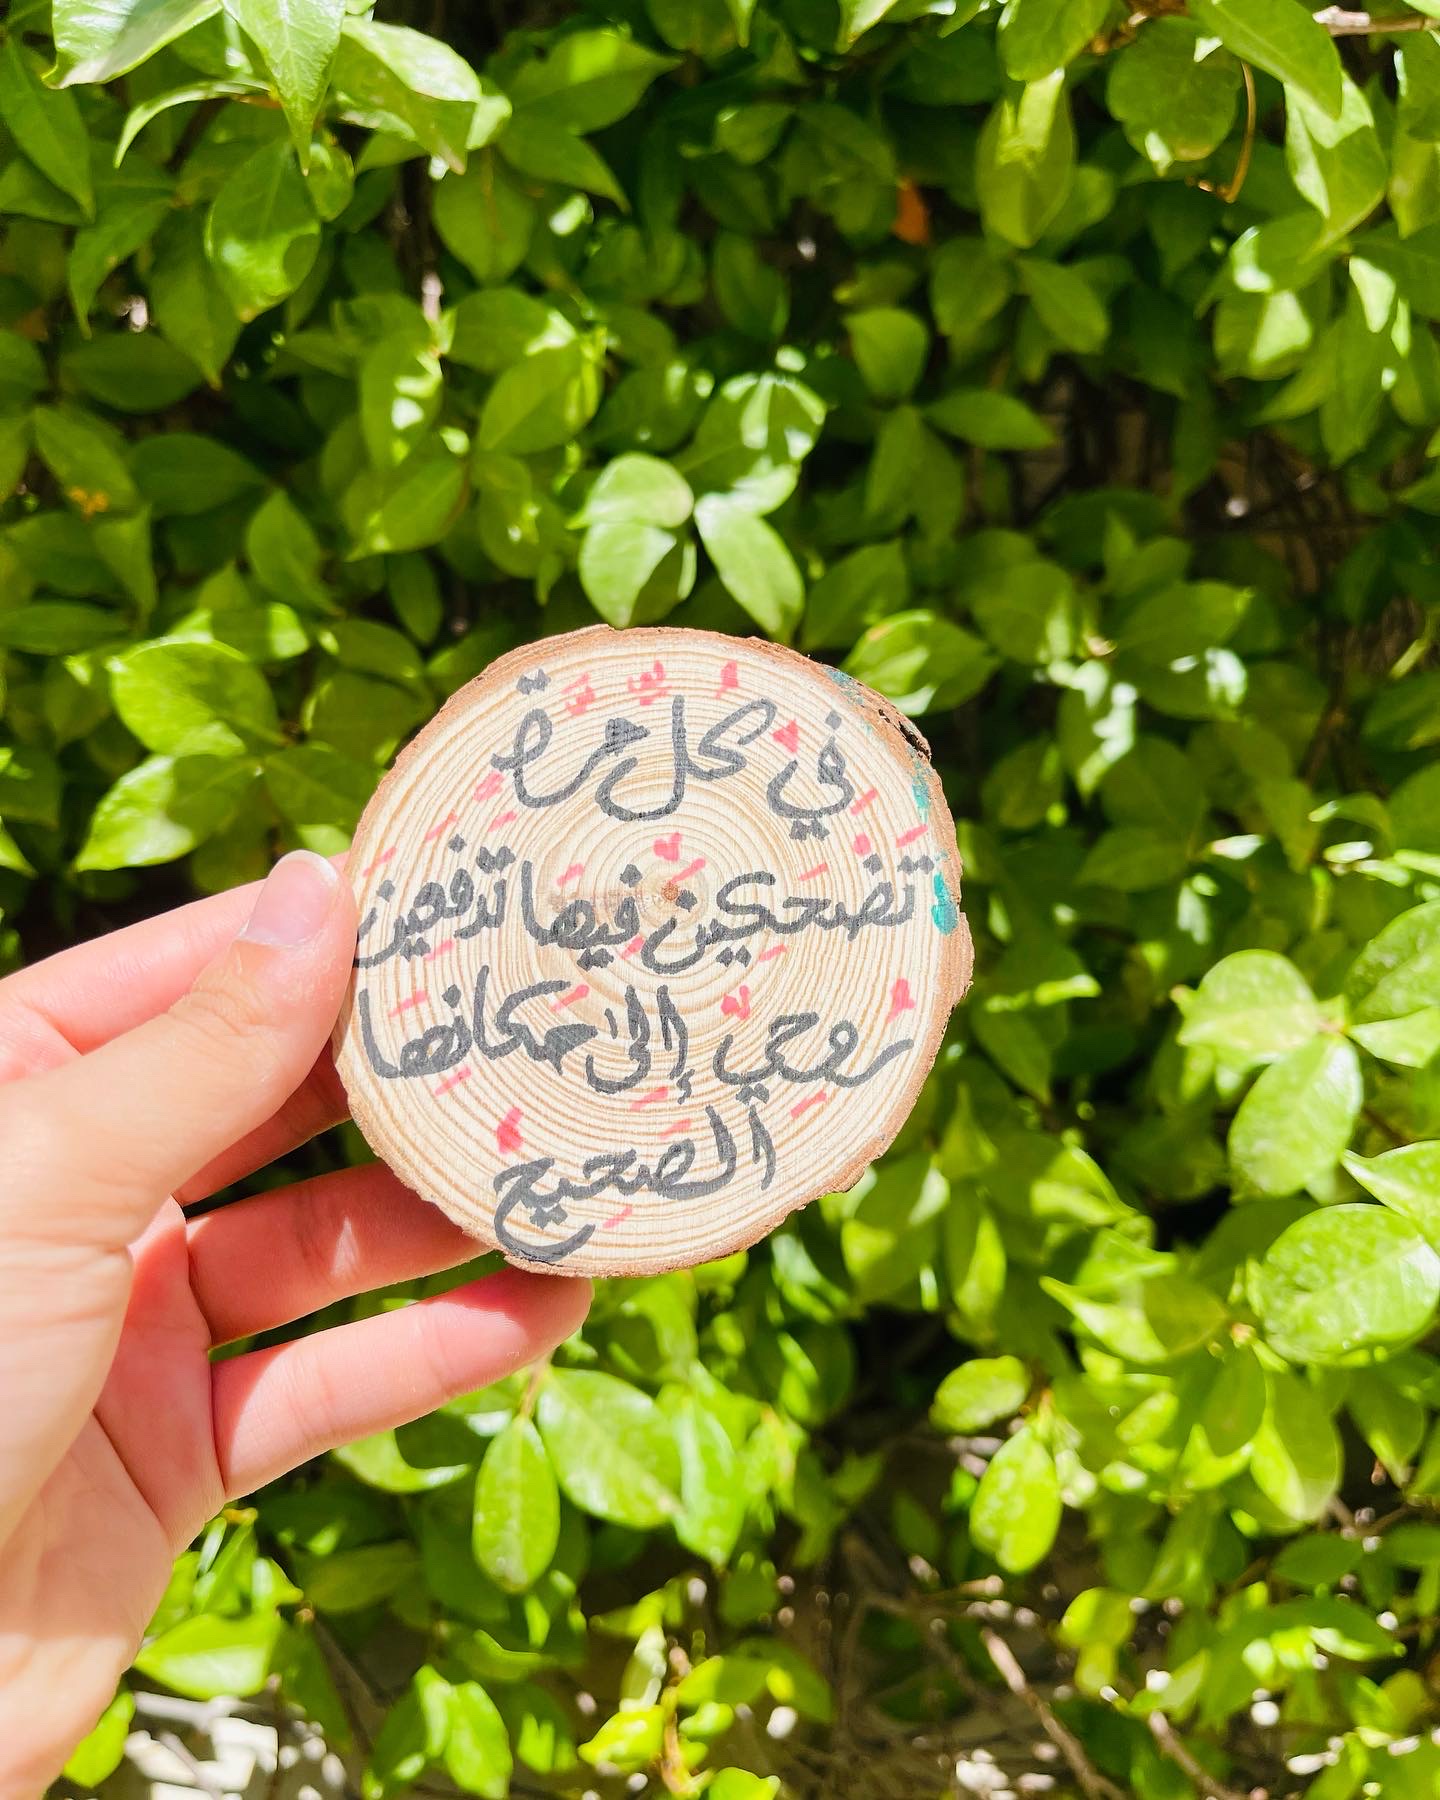 في كل مرة
تضحكين فيها تدفعين
روحي إلى مكانها
الصحيح